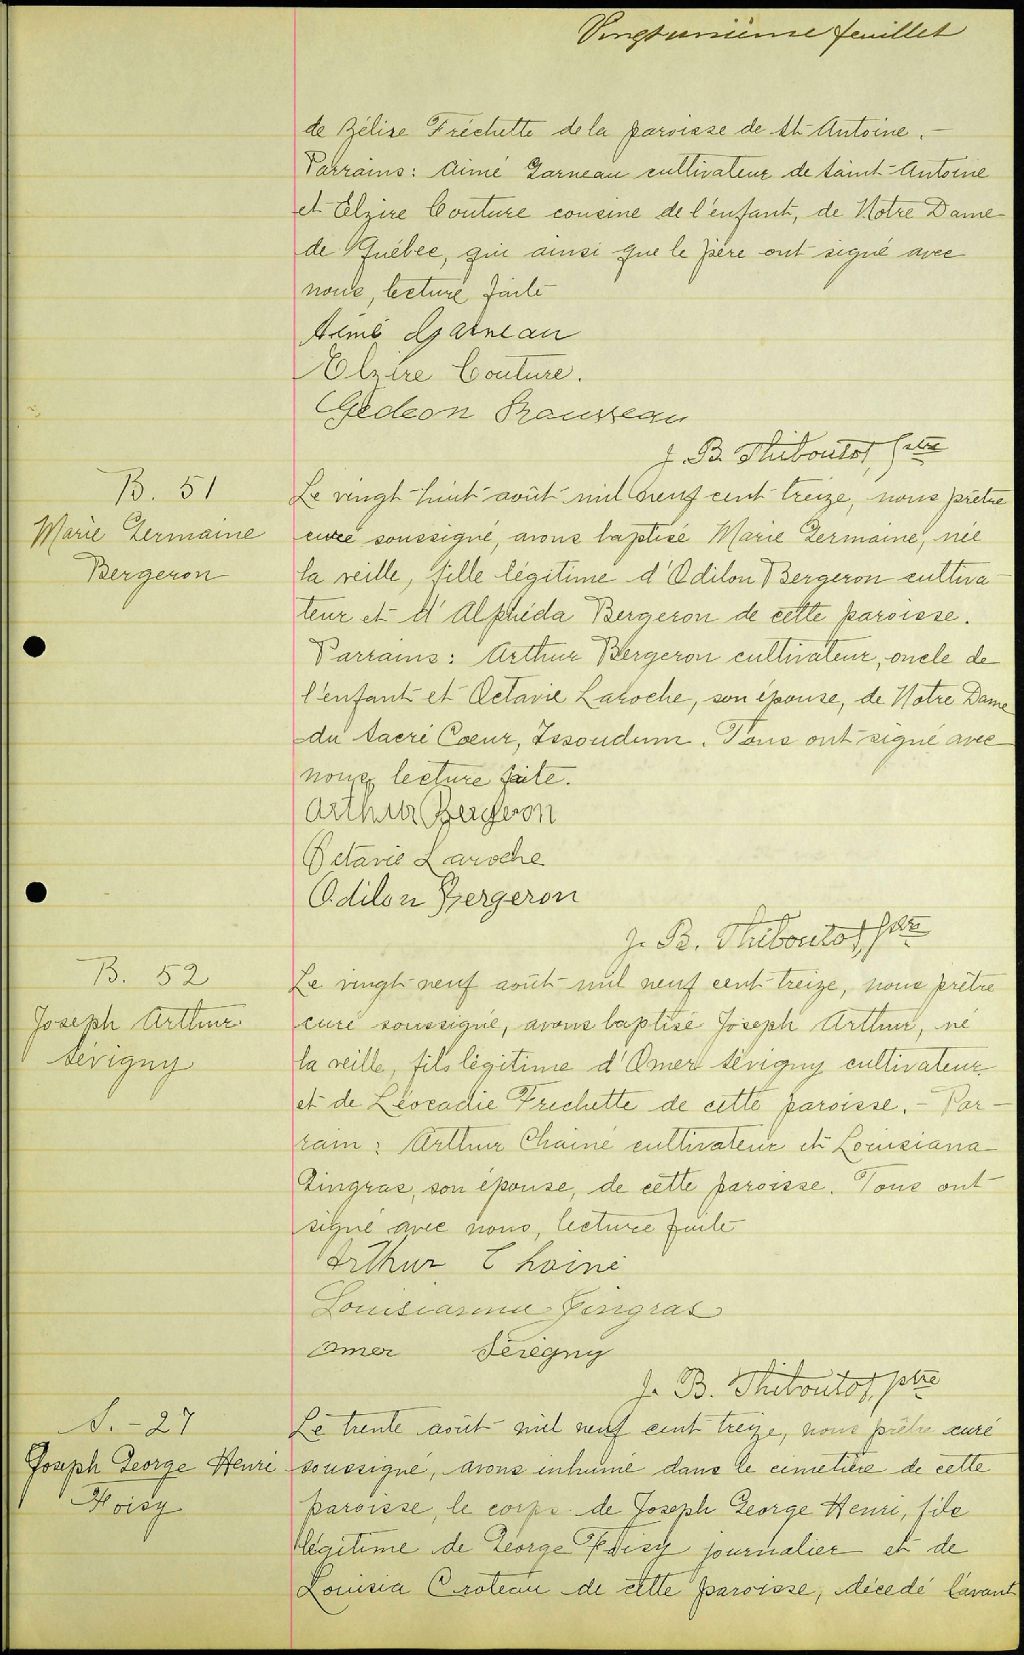 Vingt unième feuillet
de Zélise Fréchette de la paroisse de St Antoine. -
Parrains: Aimé Garneau cultivateur de Saint-Antoine
et Elzire Couture cousine de l'enfant, de Notre Dame
de Québec, qui ainsi que le père ont signé avec
nous, lecture faite
Aimé Garneau
Elzire Couture.
Gedeon Rousseau
J. B. Thiboutot, Ptre
B. 51
Marie Germaine
Bergeron
Le vingt-huit août mil neuf cent treize, nous prêtre
curé soussigné, avons baptisé Marie Germaine, née
la veille, fille légitime d'Odilon Bergeron cultiva-
teur et d'Alphéda Bergeron de cette paroisse.
Parrains: Arthur Bergeron cultivateur, oncle de
l'enfant et Octavie Laroche, son épouse, de Notre Dame
du Sacré Coeur, Issoudun. Tous ont signé avec
nous, lecture faite.
Arthur Bergeron
Octavie Laroche
Odilon Bergeron
J. B. Thiboutot, Ptre
B. 52
Joseph Arthur
Sévigny
Le vingt-neuf août mil neuf cent treize, nous prêtre
curé soussigné, avons baptisé Joseph Arthur, né
la veille, fils légitime d'Omer Sévigny cultivateur
et de Léocadie Frechette de cette paroisse. - Par-
rain: Arthur Chainé cultivateur et Louisiana
Gingras, son épouse, de cette paroisse. Tous ont
signé avec nous, lecture faite
Arthur Chainé
Louisianna Gingras
Omer Sévigny
J. B. Thiboutot, ptre
S. - 27
Joseph George Henri
Foisy
Le trente août mil neuf cent treize, nous prêtre curé
soussigné, avons inhumé dans le cimetière de cette
paroisse, le corps de Joseph George Henri, fils
légitime de George Foisy journalier et de
Louisia Croteau de cette paroisse, décédé l'avant